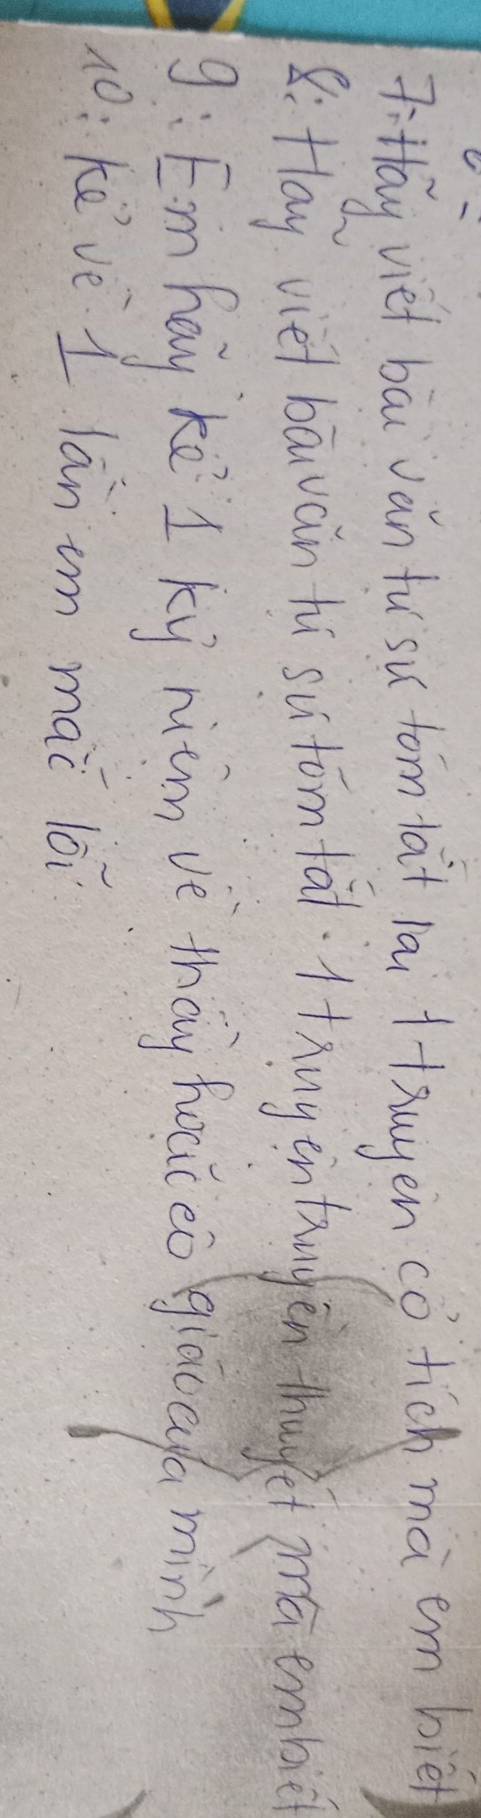 7: Hãy viết bài văn tự sự tóm tắt lại 1 truyện cổ tích mà em biết
8: Hãy viết bài văn tự sự tóm tắt 1 truyện truyền thuyết mà em biết
9: Em hãy kể 1 kỷ niệm về thầy hoặc cô giáo của mình
10: Kể về 1 lần em mắc lỗi